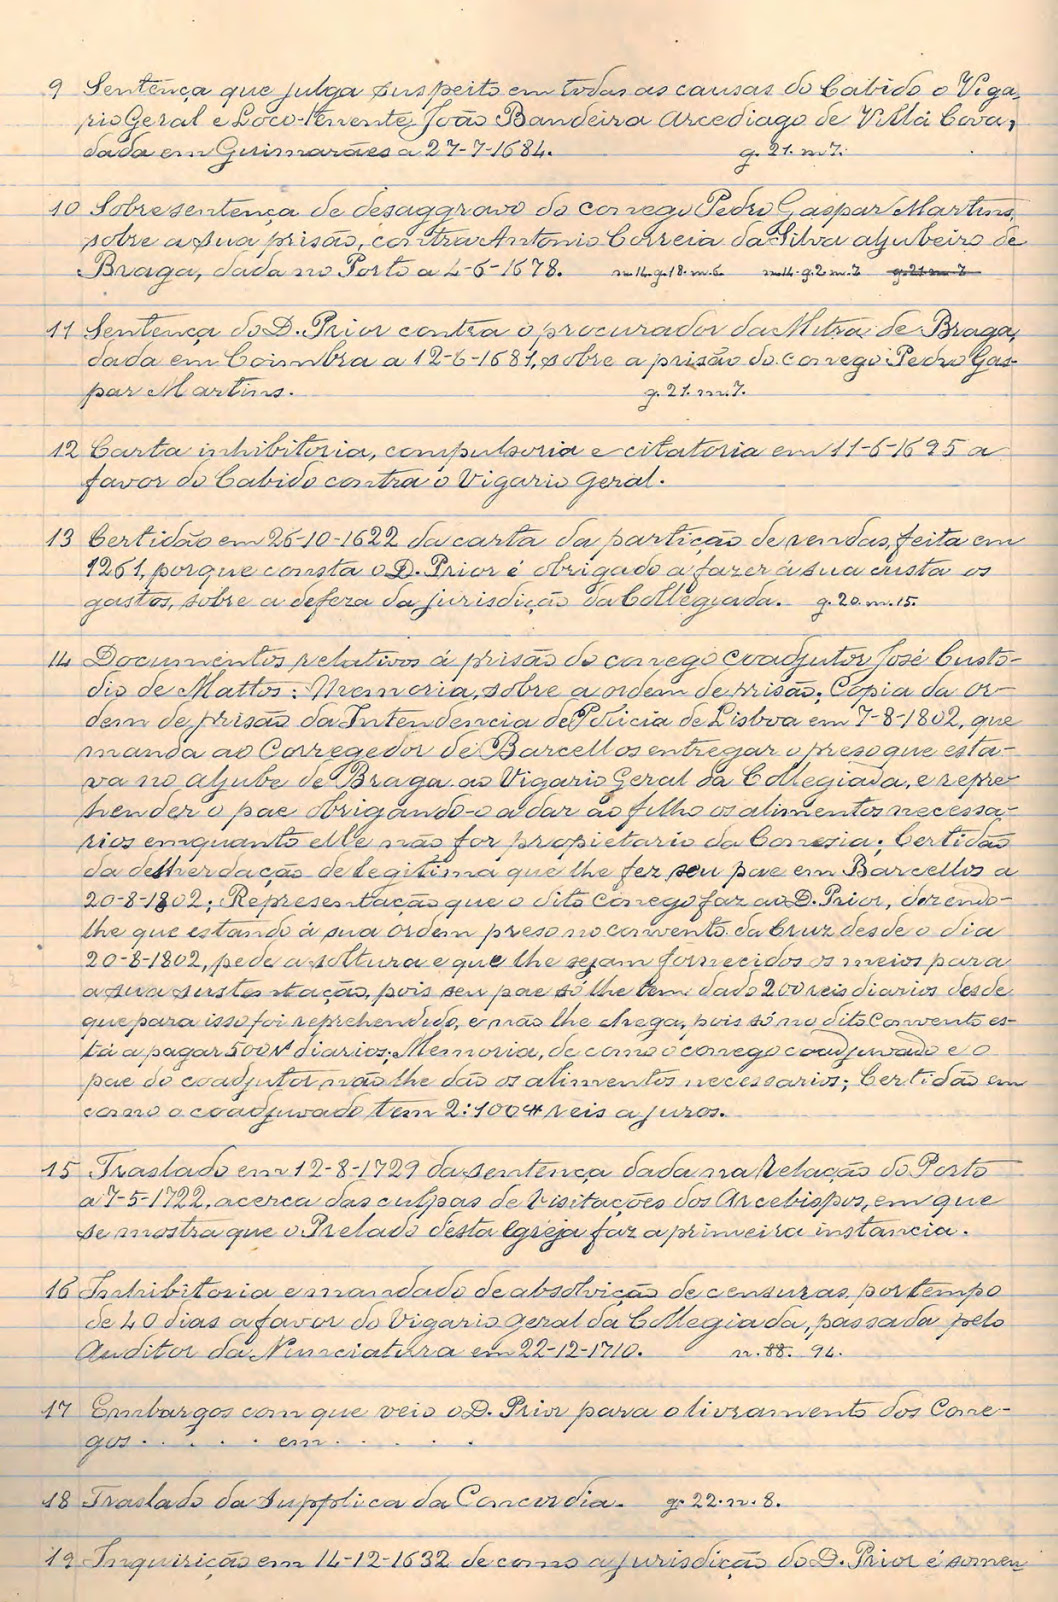 9 Sentença que julga suspeito em todas as causas do Cabido o Viga-
rio Geral e Loco-tenente, João Bandeira Arcediago de Villa Cova,
dada em Guimarães a 27-7-1684. g. 21. m 7.
10 Sobresentença de desaggravo do conego Pedro Gaspar Martins,
sobre a sua prisão, contra Antonio Correia da Silva aljubeiro de
Braga, dada no Porto a 4-6-1678. n. 14. g. 18. m. 6. n. 14. g. 2. m. 7. g. 21 m. 7.
11 Sentença do D. Prior contra o procurador da Mitra de Braga,
dada em Coimbra a 12-6-1681, sobre a prisão do conego Pedro Gas-
par Martins. g. 21. m. 7.
12 Carta inhibitoria, compulsoria e citatoria em 11-6-1695 a
favor do Cabido contra o Vigario Geral.
13 Certidão em 26-10-1622 da carta da partição de rendas, feita em
1261, porque consta o D. Prior é obrigado a fazer á sua custa os
gastos, sobre a defeza da jurisdição da Collegiada. g. 20. m. 15.
14 Documentos relativos á prisão do conego coadjutor José Custo-
dio de Mattos: Memoria, sobre a ordem de prisão; Copia da or-
dem de prisão da Intendencia de Policia de Lisboa em 7-8-1802, que
manda ao Corregedor de Barcellos entregar o preso que esta-
va no aljube de Braga ao Vigario Geral da Collegiada, e repre-
hender o pae obrigando-o a dar ao filho os alimentos necessa-
rios emquanto elle não for propietario da Conesia; Certidão
da desherdação de legitima que lhe fez seu pae em Barcellos a
20-8-1802; Representação que o dito conego faz ao D. Prior, dizendo-
lhe que estando á sua ordem preso no convento da Cruz desde o dia
20-8-1802, pede a soltura e que lhe sejam fornecidos os meios para
a sua sustentação, pois seu pae só lhe tem dado 200 reis diarios desde
que para isso foi reprehendido, e não lhe chega, pois só no dito Convento es-
tá a pagar 500 rs diarios; Memoria, de como o conego coadjuvado e o
pae do coadjutor não lhe dão os alimentos necessarios; Certidão em
como o coadjuvado tem 2:100# reis a juros.
15 Traslado em 12-8-1729 da sentença dada na Relação do Porto
a 7-5-1722, acerca das culpas de Visitações dos Arcebispos, em que
se mostra que o Prelado d'esta Igreja faz a primeira instancia.
16 Inhibitoria e mandado de absolvição de censuras, por tempo
de 40 dias a favor do Vigario geral da Collegiada, passada pelo
Auditor da Nunciatura em 22-12-1710. n. 88. 94.
17 Embargos com que veio o D. Prior para o livramento dos Cone-
gos . . . . . em . . . . . .
18 Traslado da Supplica da Concordia. g. 22. n. 8.
19 Inquirição em 14-12-1632 de como a jurisdição do D. Prior é somen-